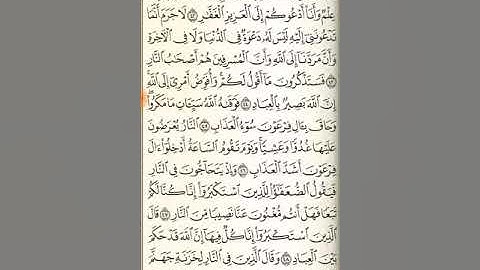 عِلْمٌ وَأَنَا۠ أَدْعُوكُمْ إِلَى ٱلْعَزِيزِ ٱلْغَفَّٰرِ ٤٢ لَا جَرَمَ أَنَّمَا
تَدْعُونَنِىٓ إِلَيْهِ لَيْسَ لَهُۥ دَعْوَةٌ فِى ٱلدُّنْيَا وَلَا فِى ٱلْءَاخِرَةِ
وَأَنَّ مَرَدَّنَآ إِلَى ٱللَّهِ وَأَنَّ ٱلْمُسْرِفِينَ هُمْ أَصْحَٰبُ ٱلنَّارِ
٤٣ فَسَتَذْكُرُونَ مَآ أَقُولُ لَكُمْ وَأُفَوِّضُ أَمْرِىٓ إِلَى ٱللَّهِ
إِنَّ ٱللَّهَ بَصِيرٌۢ بِٱلْعِبَادِ ٤٤ فَوَقَىٰهُ ٱللَّهُ سَيِّـَٔاتِ مَا مَكَرُوا۟
وَحَاقَ بِـَٔالِ فِرْعَوْنَ سُوٓءُ ٱلْعَذَابِ ٤٥ ٱلنَّارُ يُعْرَضُونَ
عَلَيْهَا غُدُوًّا وَعَشِيًّا وَيَوْمَ تَقُومُ ٱلسَّاعَةُ أَدْخِلُوٓا۟ ءَالَ
فِرْعَوْنَ أَشَدَّ ٱلْعَذَابِ ٤٦ وَإِذْ يَتَحَآجُّونَ فِى ٱلنَّارِ
فَيَقُولُ ٱلضُّعَفَٰٓؤُا۟ لِلَّذِينَ ٱسْتَكْبَرُوٓا۟ إِنَّا كُنَّا لَكُمْ
تَبَعًا فَهَلْ أَنتُم مُّغْنُونَ عَنَّا نَصِيبًا مِّنَ ٱلنَّارِ ٤٧ قَالَ
ٱلَّذِينَ ٱسْتَكْبَرُوٓا۟ إِنَّا كُلٌّ فِيهَآ إِنَّ ٱللَّهَ قَدْ حَكَمَ
بَيْنَ ٱلْعِبَادِ ٤٨ وَقَالَ ٱلَّذِينَ فِى ٱلنَّارِ لِخَزَنَةِ جَهَنَّمَ